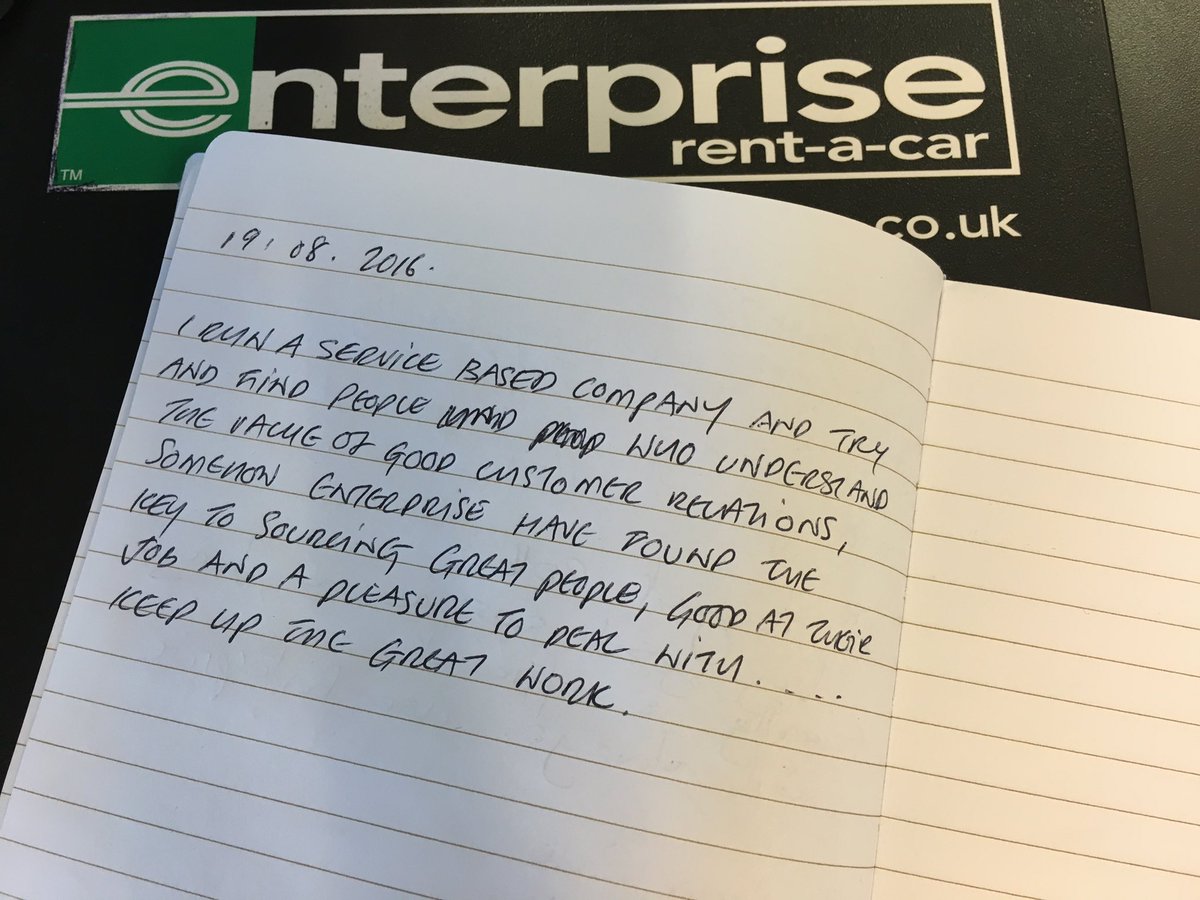 enterprise
rent-a-car
TM
.co.uk
19.08.2016.
I RUN A SERVICE BASED COMPANY AND TRY
AND FIND PEOPLE WHO UNDERSTAND
THE VALUE OF GOOD CUSTOMER RELATIONS,
SOMEHOW ENTERPRISE HAVE FOUND THE
KEY TO SOURCING GREAT PEOPLE, GOOD AT THEIR
JOB AND A PLEASURE TO DEAL WITH.....
KEEP UP THE GREAT WORK.